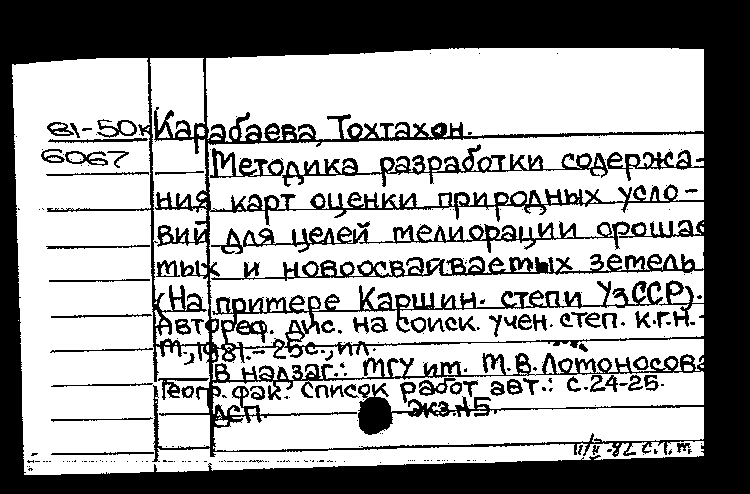 81-50к Карабаева, Тохтахон.
6067 Методика разработки содержа-
ния карт оценки природных усло-
вий для целей мелиорации орошае
мых и новоосваиваемых земель
(На примере Каршин. степи УзССР).
Автореф. дис. на соиск. учен. степ. к.г.н.-
М., 1981.- 25с., ил.
В надзаг.: МГУ им. М.В.Ломоносова
Геогр. фак. Список работ авт.: с.24-25.
ДСП. экз.№5.
11/II-82 с.т.м